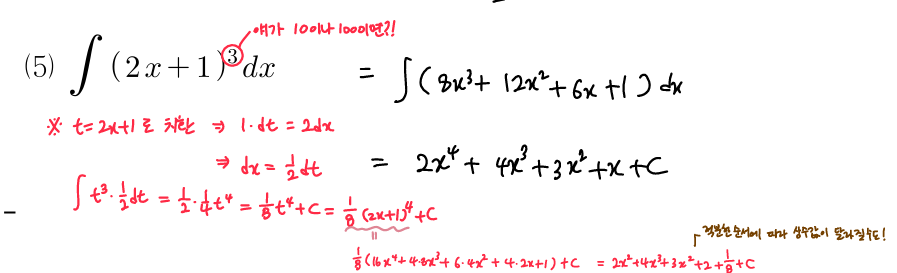 얘가 10이나 100이면?!
(5) ∫ (2x+1)³dx = ∫(8x³+ 12x²+ 6x +1) dx
※ t=2x+1 로 치환 ⇒ 1·dt = 2dx
⇒ dx = 1/2 dt = 2x⁴ + 4x³+3x²+x+C
∫t³·1/2 dt = 1/2·1/4 t⁴ = 1/8 t⁴+C = 1/8 (2x+1)⁴+C
적분한 순서에 따라 상수값이 달라질수도!
= 1/8(16x⁴+4·8x³+6·4x²+4·2x+1)+C = 2x²+4x³+3x²+2+1/8+C